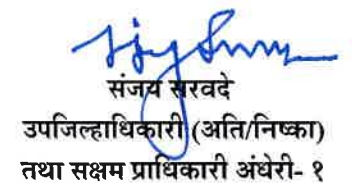 संजय सरवदे
उपजिल्हाधिकारी (अति/निष्का)
तथा सक्षम प्राधिकारी अंधेरी- १